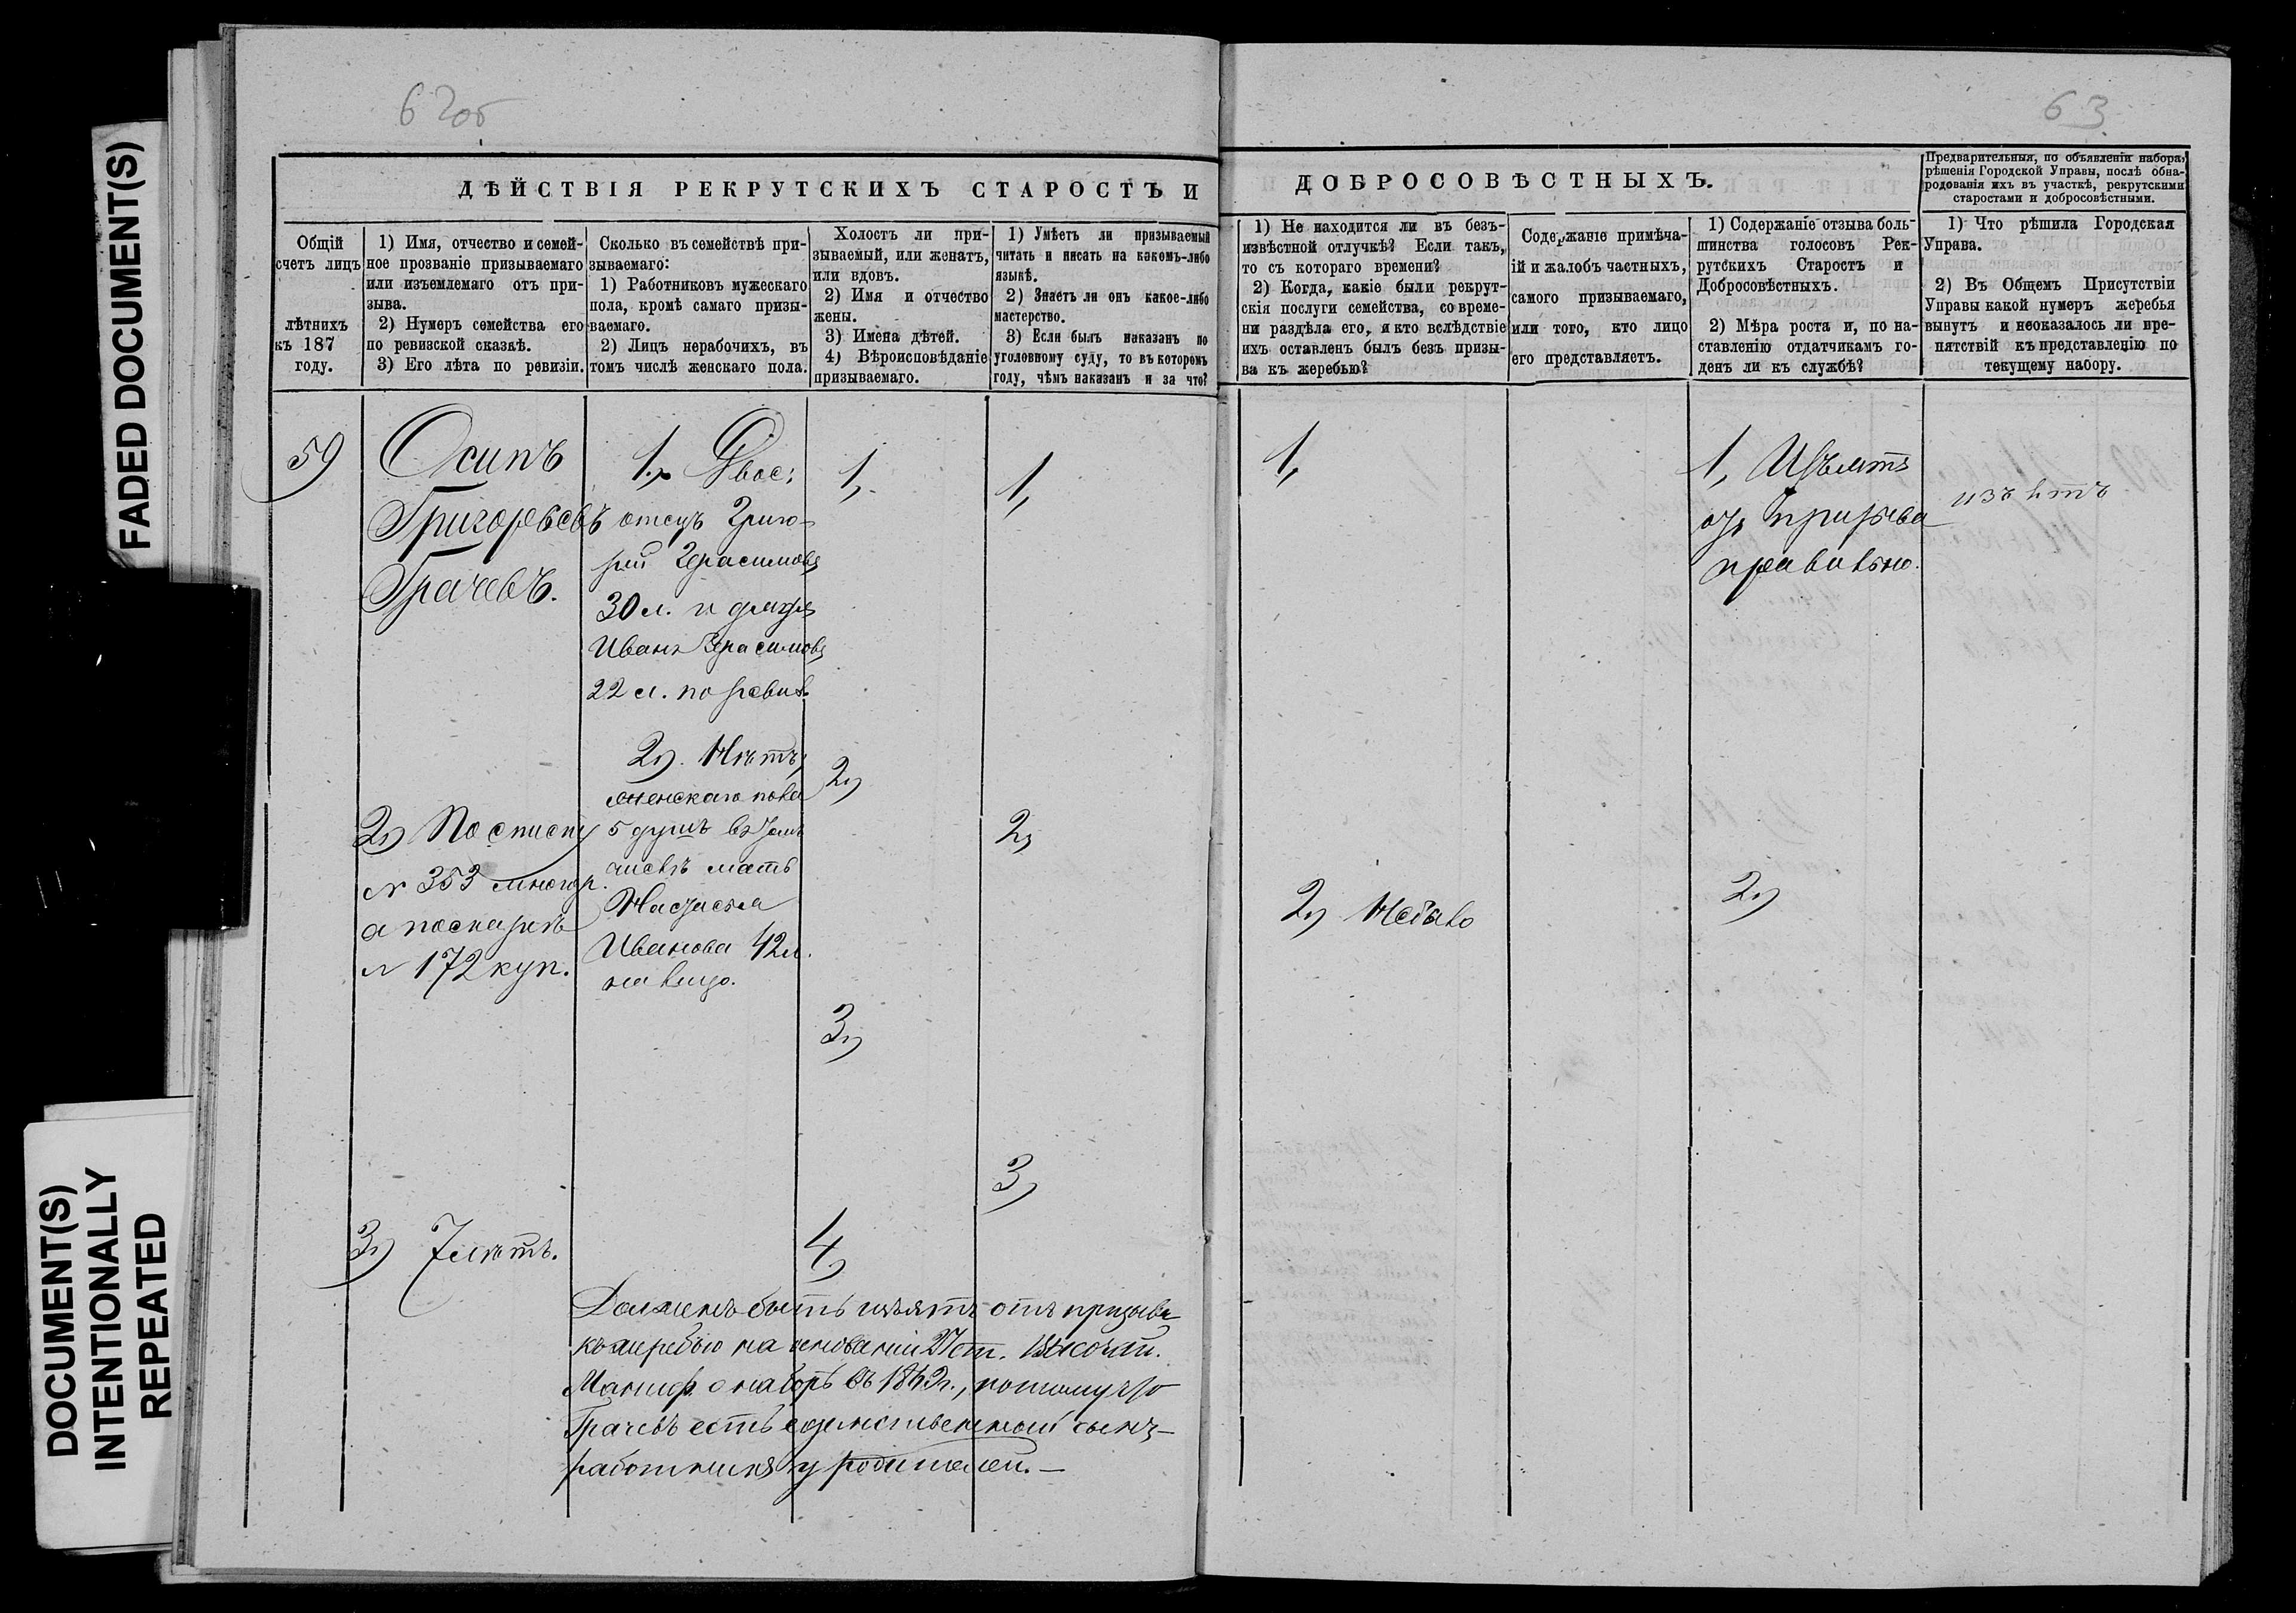 FADED DOCUMENT(S)
DOCUMENT(S)
INTENTIONALLY
REPEATED
62об
63
ДѢЙСТВІЯ РЕКРУТСКИХЪ СТАРОСТЪ И
ДОБРОСОВѢСТНЫХЪ.
Предварительныя, по объявленіи набора,
рѣшенія Городской Управы, послѣ обна-
родованія ихъ въ участкѣ, рекрутскими
старостами и добросовѣстными.
Общій
счетъ лицъ
лѣтнихъ
къ 187
году.
1) Имя, отчество и семей-
ное прозваніе призываемаго
или изъемлемаго отъ при-
зыва.
2) Нумеръ семейства его
по ревизской сказкѣ.
3) Его лѣта по ревизіи.
Сколько въ семействѣ при-
зываемаго:
1) Работниковъ мужескаго
пола, кромѣ самаго призы-
ваемаго.
2) Лицъ нерабочихъ, въ
томъ числѣ женскаго пола.
Холостъ ли при-
зываемый, или женатъ,
или вдовъ.
2) Имя и отчество
жены.
3) Имена дѣтей.
4) Вѣроисповѣданіе
призываемаго.
1) Умѣетъ ли призываемый
читать и писать на какомъ-либо
языкѣ.
2) Знаетъ ли онъ какое-либо
мастерство.
3) Если былъ наказанъ по
уголовному суду, то въ которомъ
году, чѣмъ наказанъ и за что?
1) Не находится ли въ безъ-
извѣстной отлучкѣ? Если такъ,
то съ котораго времени?
2) Когда, какіе были рекрут-
скія послуги семейства, со време-
ни раздѣла его, и кто вслѣдствіе
ихъ оставленъ былъ безъ призы-
ва къ жеребью?
Содержаніе примѣча-
ій и жалобъ частныхъ,
самого призываемаго,
или того, кто лицо
его представляетъ.
1) Содержаніе отзыва боль-
шинства голосовъ Рек-
рутскихъ Старостъ и
Добросовѣстныхъ.
2) Мѣра роста и, по на-
ставленію отдатчикамъ го-
денъ ли къ службѣ?
1) Что рѣшила Городская
Управа.
2) Въ Общемъ Присутствіи
Управы какой нумеръ жеребья
вынутъ и неоказалось ли пре-
пятствій къ представленію по
текущему набору.
59
Осипъ
Григорьевъ
Грачевъ.
2) По списку
№ 353 многор.
а по сказкѣ
№ 172 куп.
3) 7 лѣтъ.
1) Двое:
отецъ Григо-
рій Герасимовъ
30 л. и дядя
Иванъ Герасимовъ
22 л. по ревиз.
2) Нѣтъ,
женскаго пола
5 душъ въ томъ
числѣ мать
Настасья
Иванова 42 л.
на лицо.
1,
2)
3)
4)
1,
2)
3)
Долженъ быть изъятъ отъ призыва
къ жеребью на основаніи 27 ст. Высочай.
Маниф. о наборѣ въ 1862 г., потому что
Грачевъ есть единственный сынъ-
работникъ у родителей.—
1,
2) Небыло
1, Изъятъ
отъ призыва
правильно.
2)
изъятъ